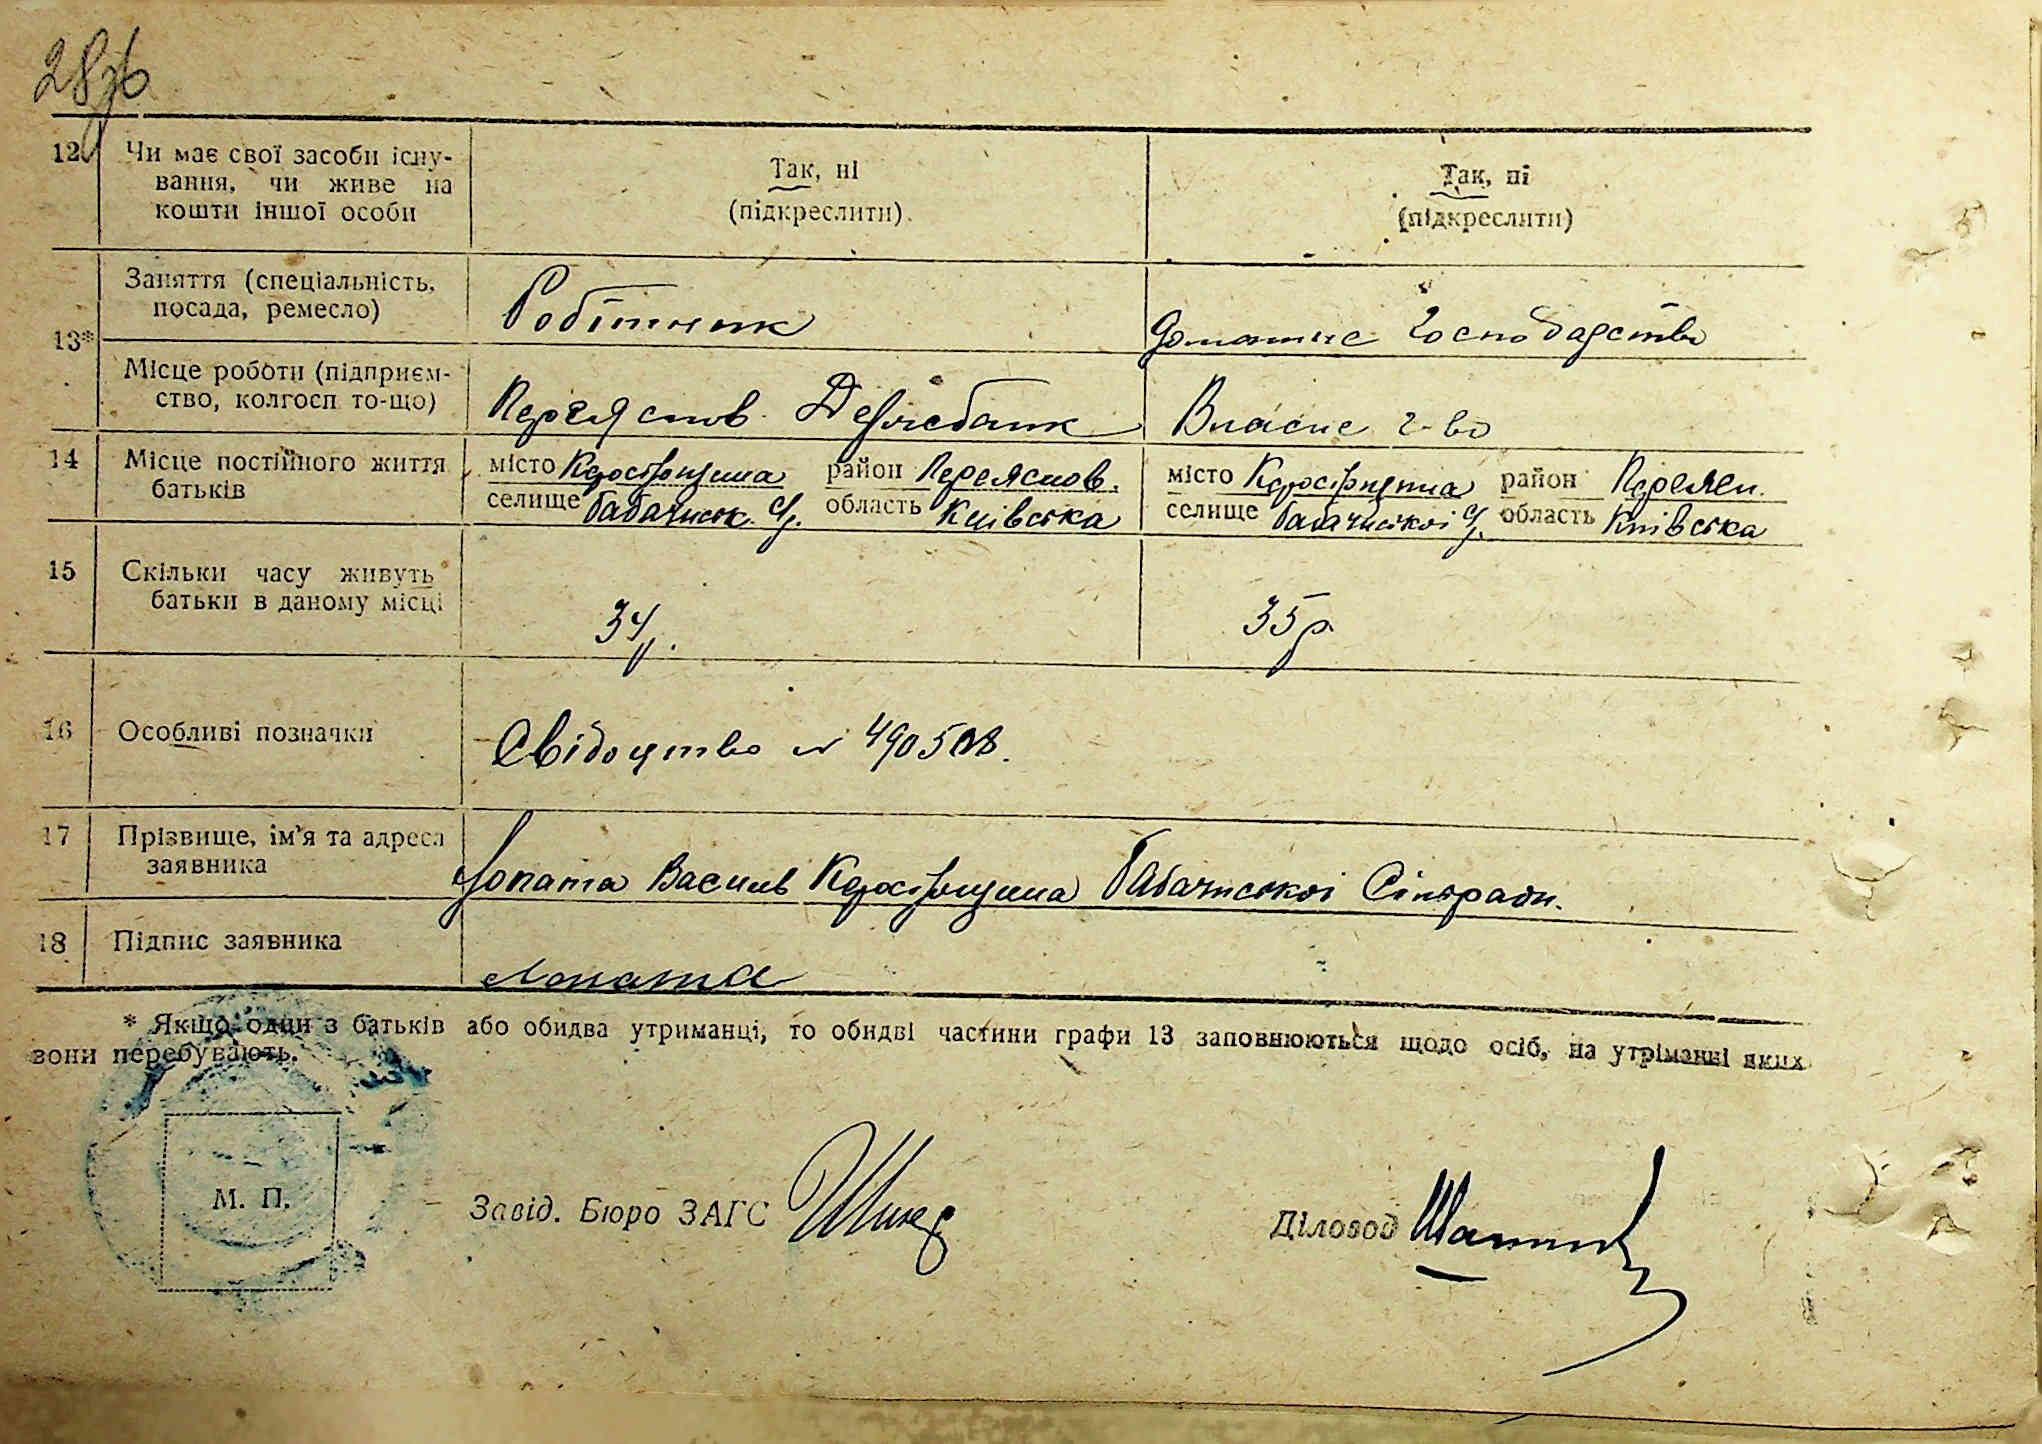 28зв
12 Чи має свої засоби існу-
вання, чи живе на
кошти іншої особи
Так, ні
(підкреслити)
Так, ні
(підкреслити)
13*
Заняття (спеціальність,
посада, ремесло)
Робітник
домашнє господарство
Місце роботи (підприєм-
ство, колгосп то-що)
Переяслов. Держбанк
Власне г-во
14 Місце постійного життя
батьків
місто Каростищина район Переяслов.
селище Бабачиськ. с/р. область Київська
місто Каростищина район Переясл.
селище Бабачиської с/р. область Київська
15 Скільки часу живуть
батьки в даному місці
34р.
35р
16 Особливі позначки
Свідоцтво № 490508.
17 Прізвище, ім'я та адреса
заявника
Лопата Василь Бабачиської Сільради.
18 Підпис заявника
Лопата
* Якщо один з батьків або обидва утриманці, то обидві частини графи 13 заповнюються щодо осіб, на утріманні яких
вони перебувають.
М. П.
Завід. Бюро ЗАГС
Діловод